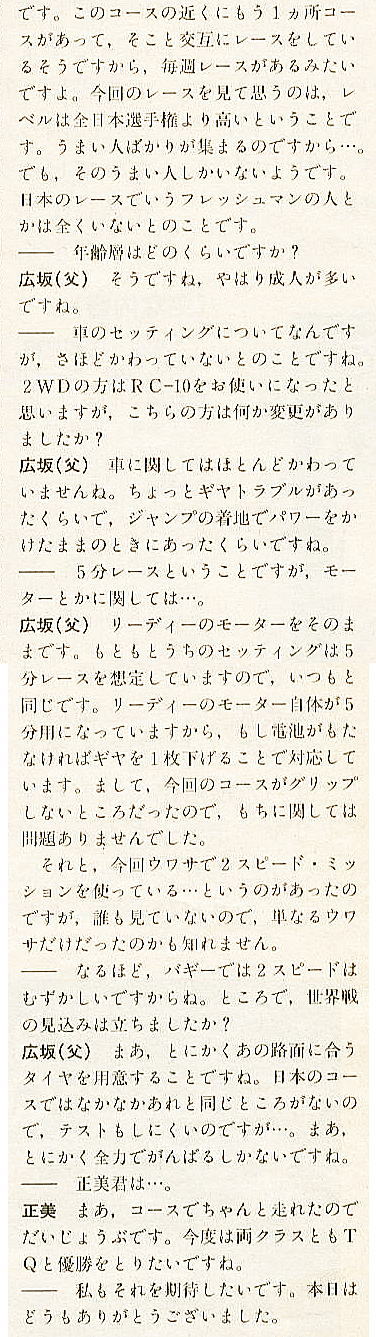 です。このコースの近くにもう1ヵ所コー
スがあって，そこと交互にレースをしてい
るそうですから，毎週レースがあるみたい
ですよ。今回のレースを見て思うのは，レ
ベルは全日本選手権より高いということで
す。うまい人ばかりが集まるのですから…。
でも，そのうまい人しかいないようです。
日本のレースでいうフレッシュマンの人と
かは全くいないとのことです。
―― 年齢層はどのくらいですか？
広坂(父) そうですね，やはり成人が多い
ですね。
―― 車のセッティングについてなんです
が，さほどかわっていないとのことですね。
2WDの方はRC-10をお使いになったと
思いますが，こちらの方は何か変更があり
ましたか？
広坂(父) 車に関してはほとんどかわって
いませんね。ちょっとギヤトラブルがあっ
たくらいで，ジャンプの着地でパワーをか
けたままのときにあったくらいですね。
―― 5分レースということですが，モー
ターとかに関しては…。
広坂(父) リーディーのモーターをそのま
まです。もともとうちのセッティングは5
分レースを想定していますので，いつもと
同じです。リーディーのモーター自体が5
分用になっていますから，もし電池がもた
なければギヤを1枚下げることで対応して
います。まして，今回のコースがグリップ
しないところだったので，もちに関しては
問題ありませんでした。
それと，今回ウワサで2スピード・ミッ
ションを使っている…というのがあったの
ですが，誰も見ていないので，単なるウワ
サだけだったのかも知れません。
―― なるほど，バギーでは2スピードは
むずかしいですからね。ところで，世界戦
の見込みは立ちましたか？
広坂(父) まあ，とにかくあの路面に合う
タイヤを用意することですね。日本のコー
スではなかなかあれと同じところがないの
で，テストもしにくいのですが…。まあ，
とにかく全力でがんばるしかないですね。
―― 正美君は…。
正美 まあ，コースでちゃんと走れたので
だいじょうぶです。今度は両クラスともT
Qと優勝をとりたいですね。
―― 私もそれを期待したいです。本日は
どうもありがとうございました。